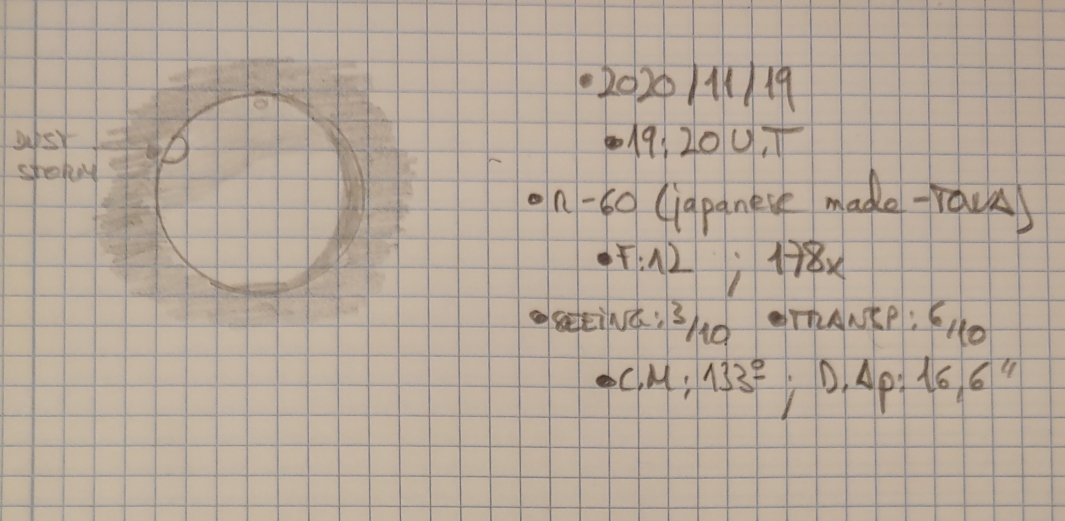 DUST
STORM
•2020/11/19
•19:20 U.T
•R-60 (japanese made-TOWA)
•F:12 ; 178x
•SEEING:3/10 •TRANSP:6/10
•C.M:133º; D.Ap:16,6"